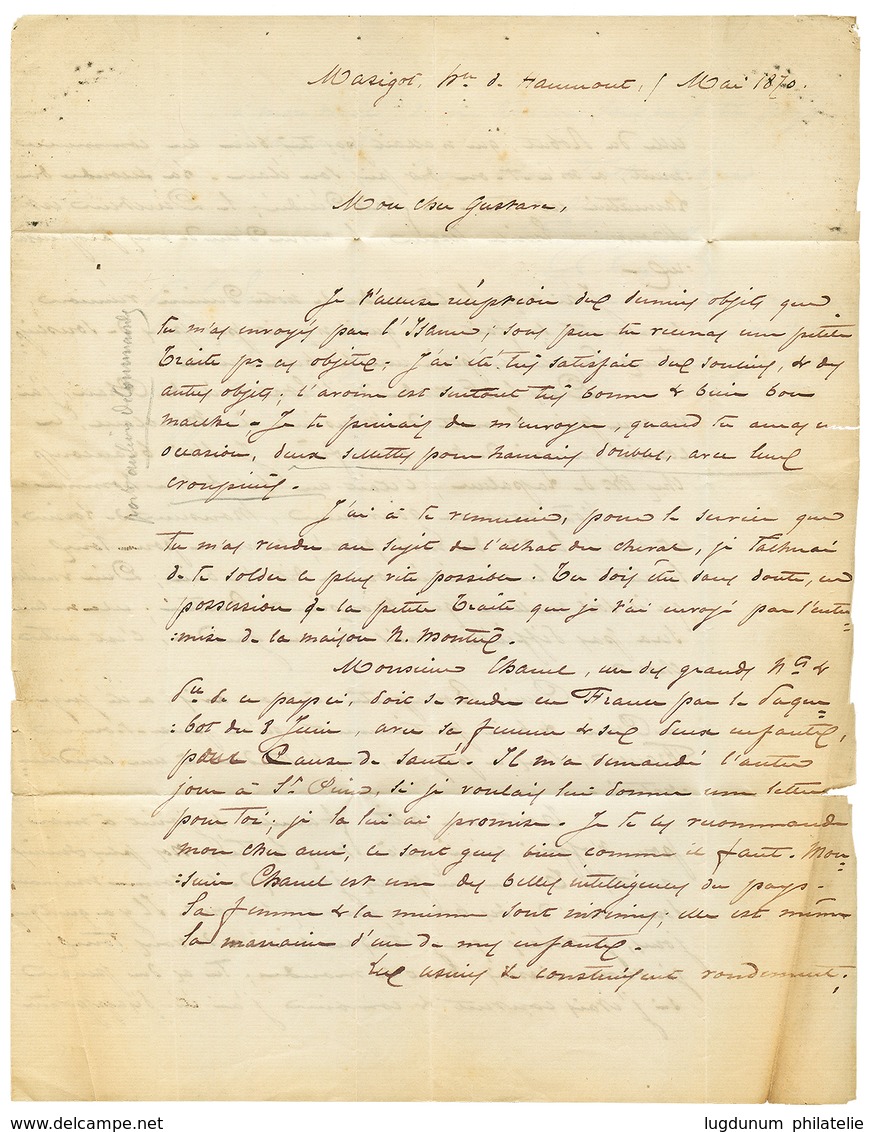 Marigot, hon de Haumont, 1 Mai 1870.
Mon cher Gustave,
Je t'accuse réception des derniers objets que
tu m'as envoyés par l'Isaure; sous peu tu recevras une petite
traite pr ces objets; j'ai été très satisfait des souliers, & des
autres objets; l'avoine est surtout très bonne & bien bon
marché. Je te prierais de m'envoyer, quand tu auras
occasion, deux sellettes pour harnais doubles, avec leurs
croupières.
J'ai à te remercier, pour le service que
tu m'as rendu au sujet de l'achat du cheval, je tâcherai
de te solder le plus vite possible. Tu dois être sans doute, en
possession de la petite traite que je t'ai envoyé par l'entre=
=mise de la maison N. Monteil.
Monsieur Chanel, un des grands
de ce pays ci, doit se rendre en France par le paque=
=bot du 8 Juin, avec sa femme & ses deux enfants,
pour cause de santé. Il m'a demandé l'autre
jour à St Pierre, si je voulais lui donner une lettre
pour toi; je la lui ai promise. Je te les recommande
mon cher ami, ce sont gens bien comme il faut. Mon=
=sieur Chanel est une des belles intelligences du pays.
Sa femme & la mienne sont intimes; elle est même
la marraine d'un de mes enfants.
Les usines se construisent rondement;
delcampe.net
lugdunum philatelie